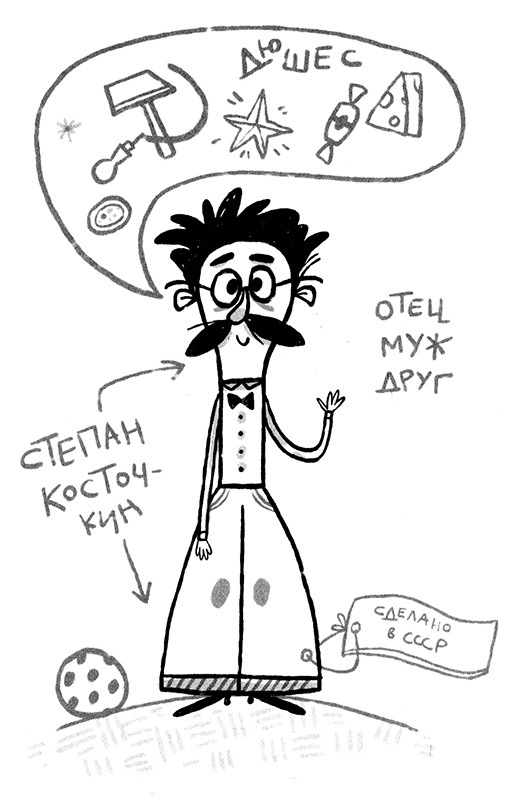 ДЮШЕС
ОТЕЦ
МУЖ
ДРУГ
СТЕПАН
КОСТОЧ-
КИН
СДЕЛАНО
В СССР